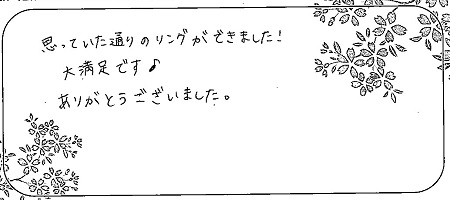 思っていた通りのリングができました!
大満足です♪
ありがとうございました。